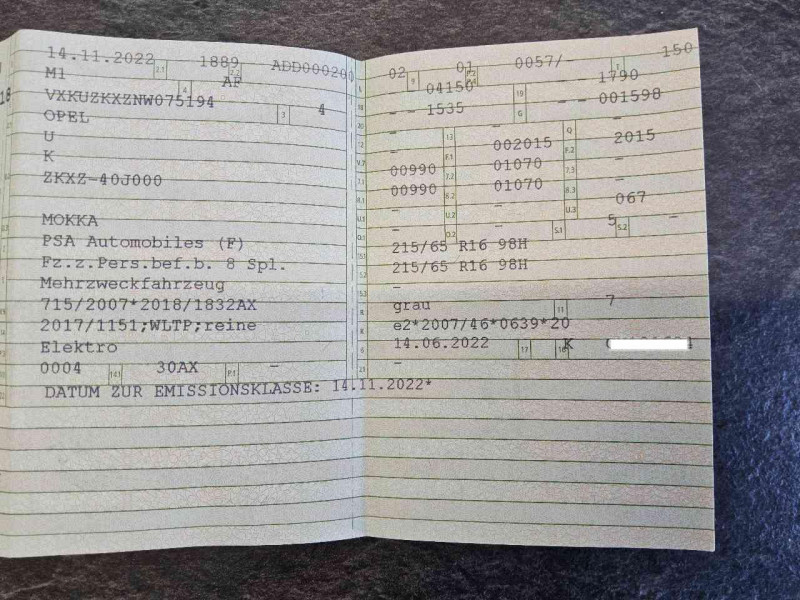 14.11.2022 2.1 1889 2.2 ADD000200
M1 AF
4
VXKUZKXZNW075194 3 4
OPEL
U
K
ZKXZ-40J000
MOKKA
PSA Automobiles (F)
Fz.z.Pers.bef.b. 8 Spl.
Mehrzweckfahrzeug
715/2007*2018/1832AX
2017/1151;WLTP;reine
Elektro
0004 14.1 30AX P.1 -
DATUM ZUR EMISSIONSKLASSE: 14.11.2022*
L 02 9 01 P.2 P.4 0057/- T 150
18 04150 19 - 1790
20 - - 1535 G - - 001598
12 - 13 - Q -
V.7 - F.1 002015 F.2 2015
7.1 00990 7.2 01070 7.3 -
8.1 00990 8.2 01070 8.3 -
U.1 - U.2 - U.3 067
O.1 - O.2 - S.1 5 S.2 -
15.1 215/65 R16 98H
15.2 215/65 R16 98H
15.3 -
R grau 11 7
K e2*2007/46*0639*20
6 14.06.2022 17 K 16
21 -